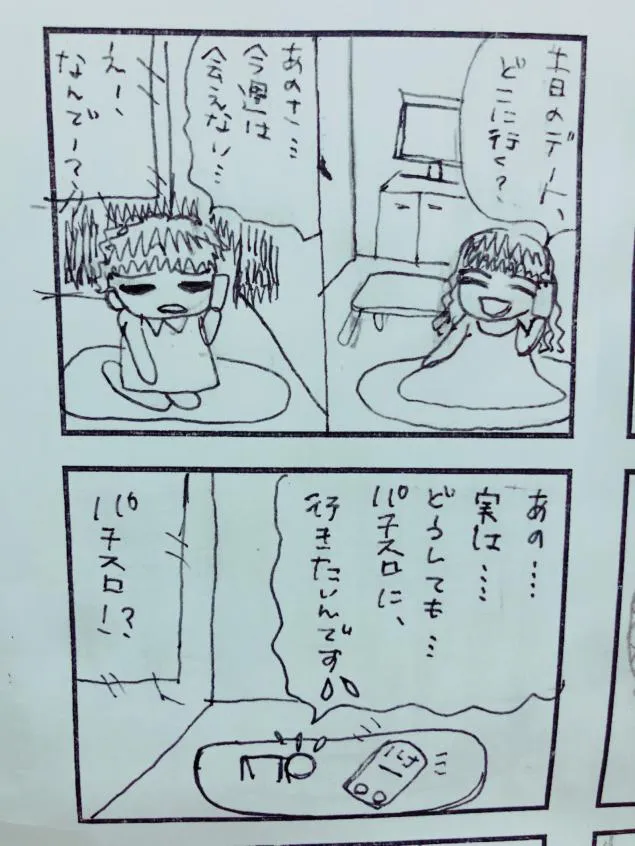 土日のデート、
どこに行く?
あのさ…
今週は
会えない…
えー、
なんでー?
あの…
実は…
どうしても…
パチスロに、
行きたいんです
パチスロー!?